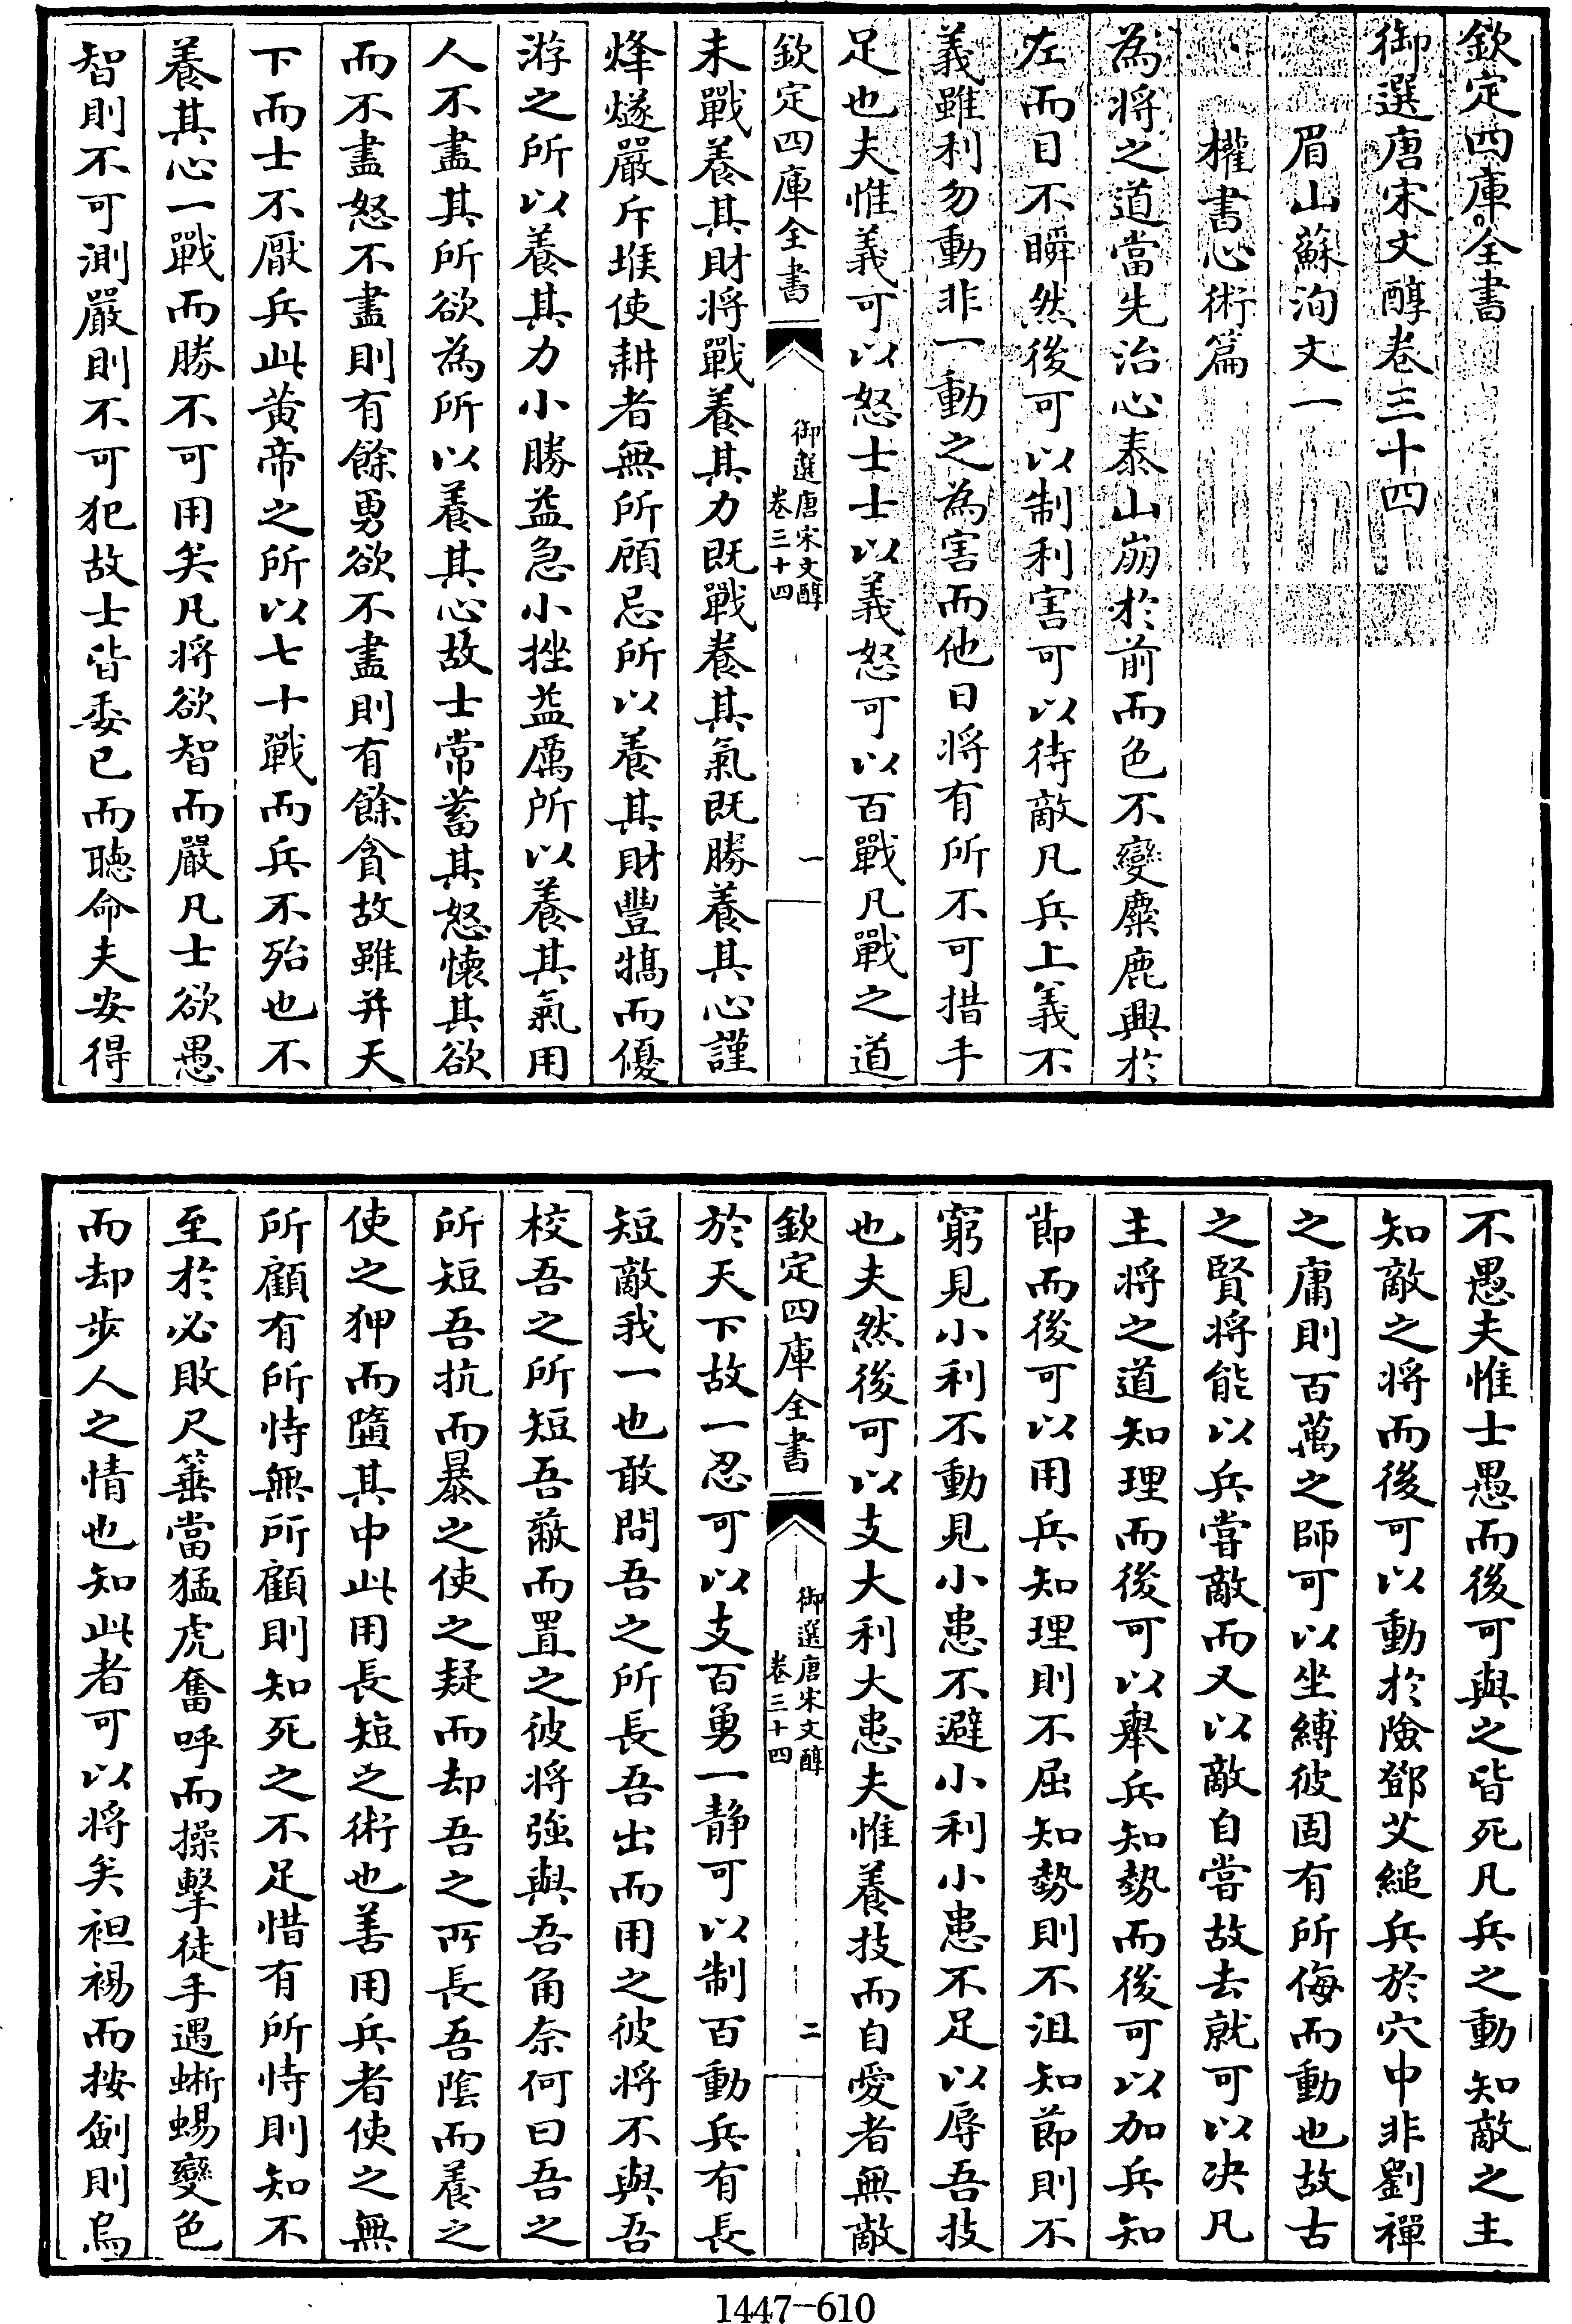 欽定四庫全書
御選唐宋文醇卷三十四
眉山蘇洵文一
權書心術篇
為將之道當先治心泰山崩於前而色不變麋鹿興於
左而目不瞬然後可以制利害可以待敵凡兵上義不
義雖利勿動非一動之為害而他日將有所不可措手
足也夫惟義可以怒士士以義怒可以百戰凡戰之道
欽定四庫全書
御選唐宋文醇
卷三十四
一
未戰養其財將戰養其力既戰養其氣既勝養其心謹
烽燧嚴斥堠使耕者無所顧忌所以養其財豐犒而優
游之所以養其力小勝益急小挫益厲所以養其氣用
人不盡其所欲為所以養其心故士常蓄其怒懷其欲
而不盡怒不盡則有餘勇欲不盡則有餘貪故雖并天
下而士不厭兵此黃帝之所以七十戰而兵不殆也不
養其心一戰而勝不可用矣凡將欲智而嚴凡士欲愚
智則不可測嚴則不可犯故士皆委已而聽命夫安得
不愚夫惟士愚而後可與之皆死凡兵之動知敵之主
知敵之將而後可以動於險鄧艾縋兵於穴中非劉禪
之庸則百萬之師可以坐縛彼固有所侮而動也故古
之賢將能以兵嘗敵而又以敵自嘗故去就可以决凡
主將之道知理而後可以舉兵知勢而後可以加兵知
節而後可以用兵知理則不屈知勢則不沮知節則不
窮見小利不動見小患不避小利小患不足以辱吾技
也夫然後可以支大利大患夫惟養技而自愛者無敵
欽定四庫全書
御選唐宋文醇
卷三十四
二
於天下故一忍可以支百勇一静可以制百動兵有長
短敵我一也敢問吾之所長吾出而用之彼將不與吾
校吾之所短吾蔽而置之彼將强與吾角奈何曰吾之
所短吾抗而暴之使之疑而却吾之所長吾陰而養之
使之狎而墮其中此用長短之術也善用兵者使之無
所顧有所恃無所顧則知死之不足惜有所恃則知不
至於必敗尺箠當猛虎奮呼而操擊徒手遇蜥蜴變色
而却步人之情也知此者可以將矣袒裼而按劍則烏
1447-610